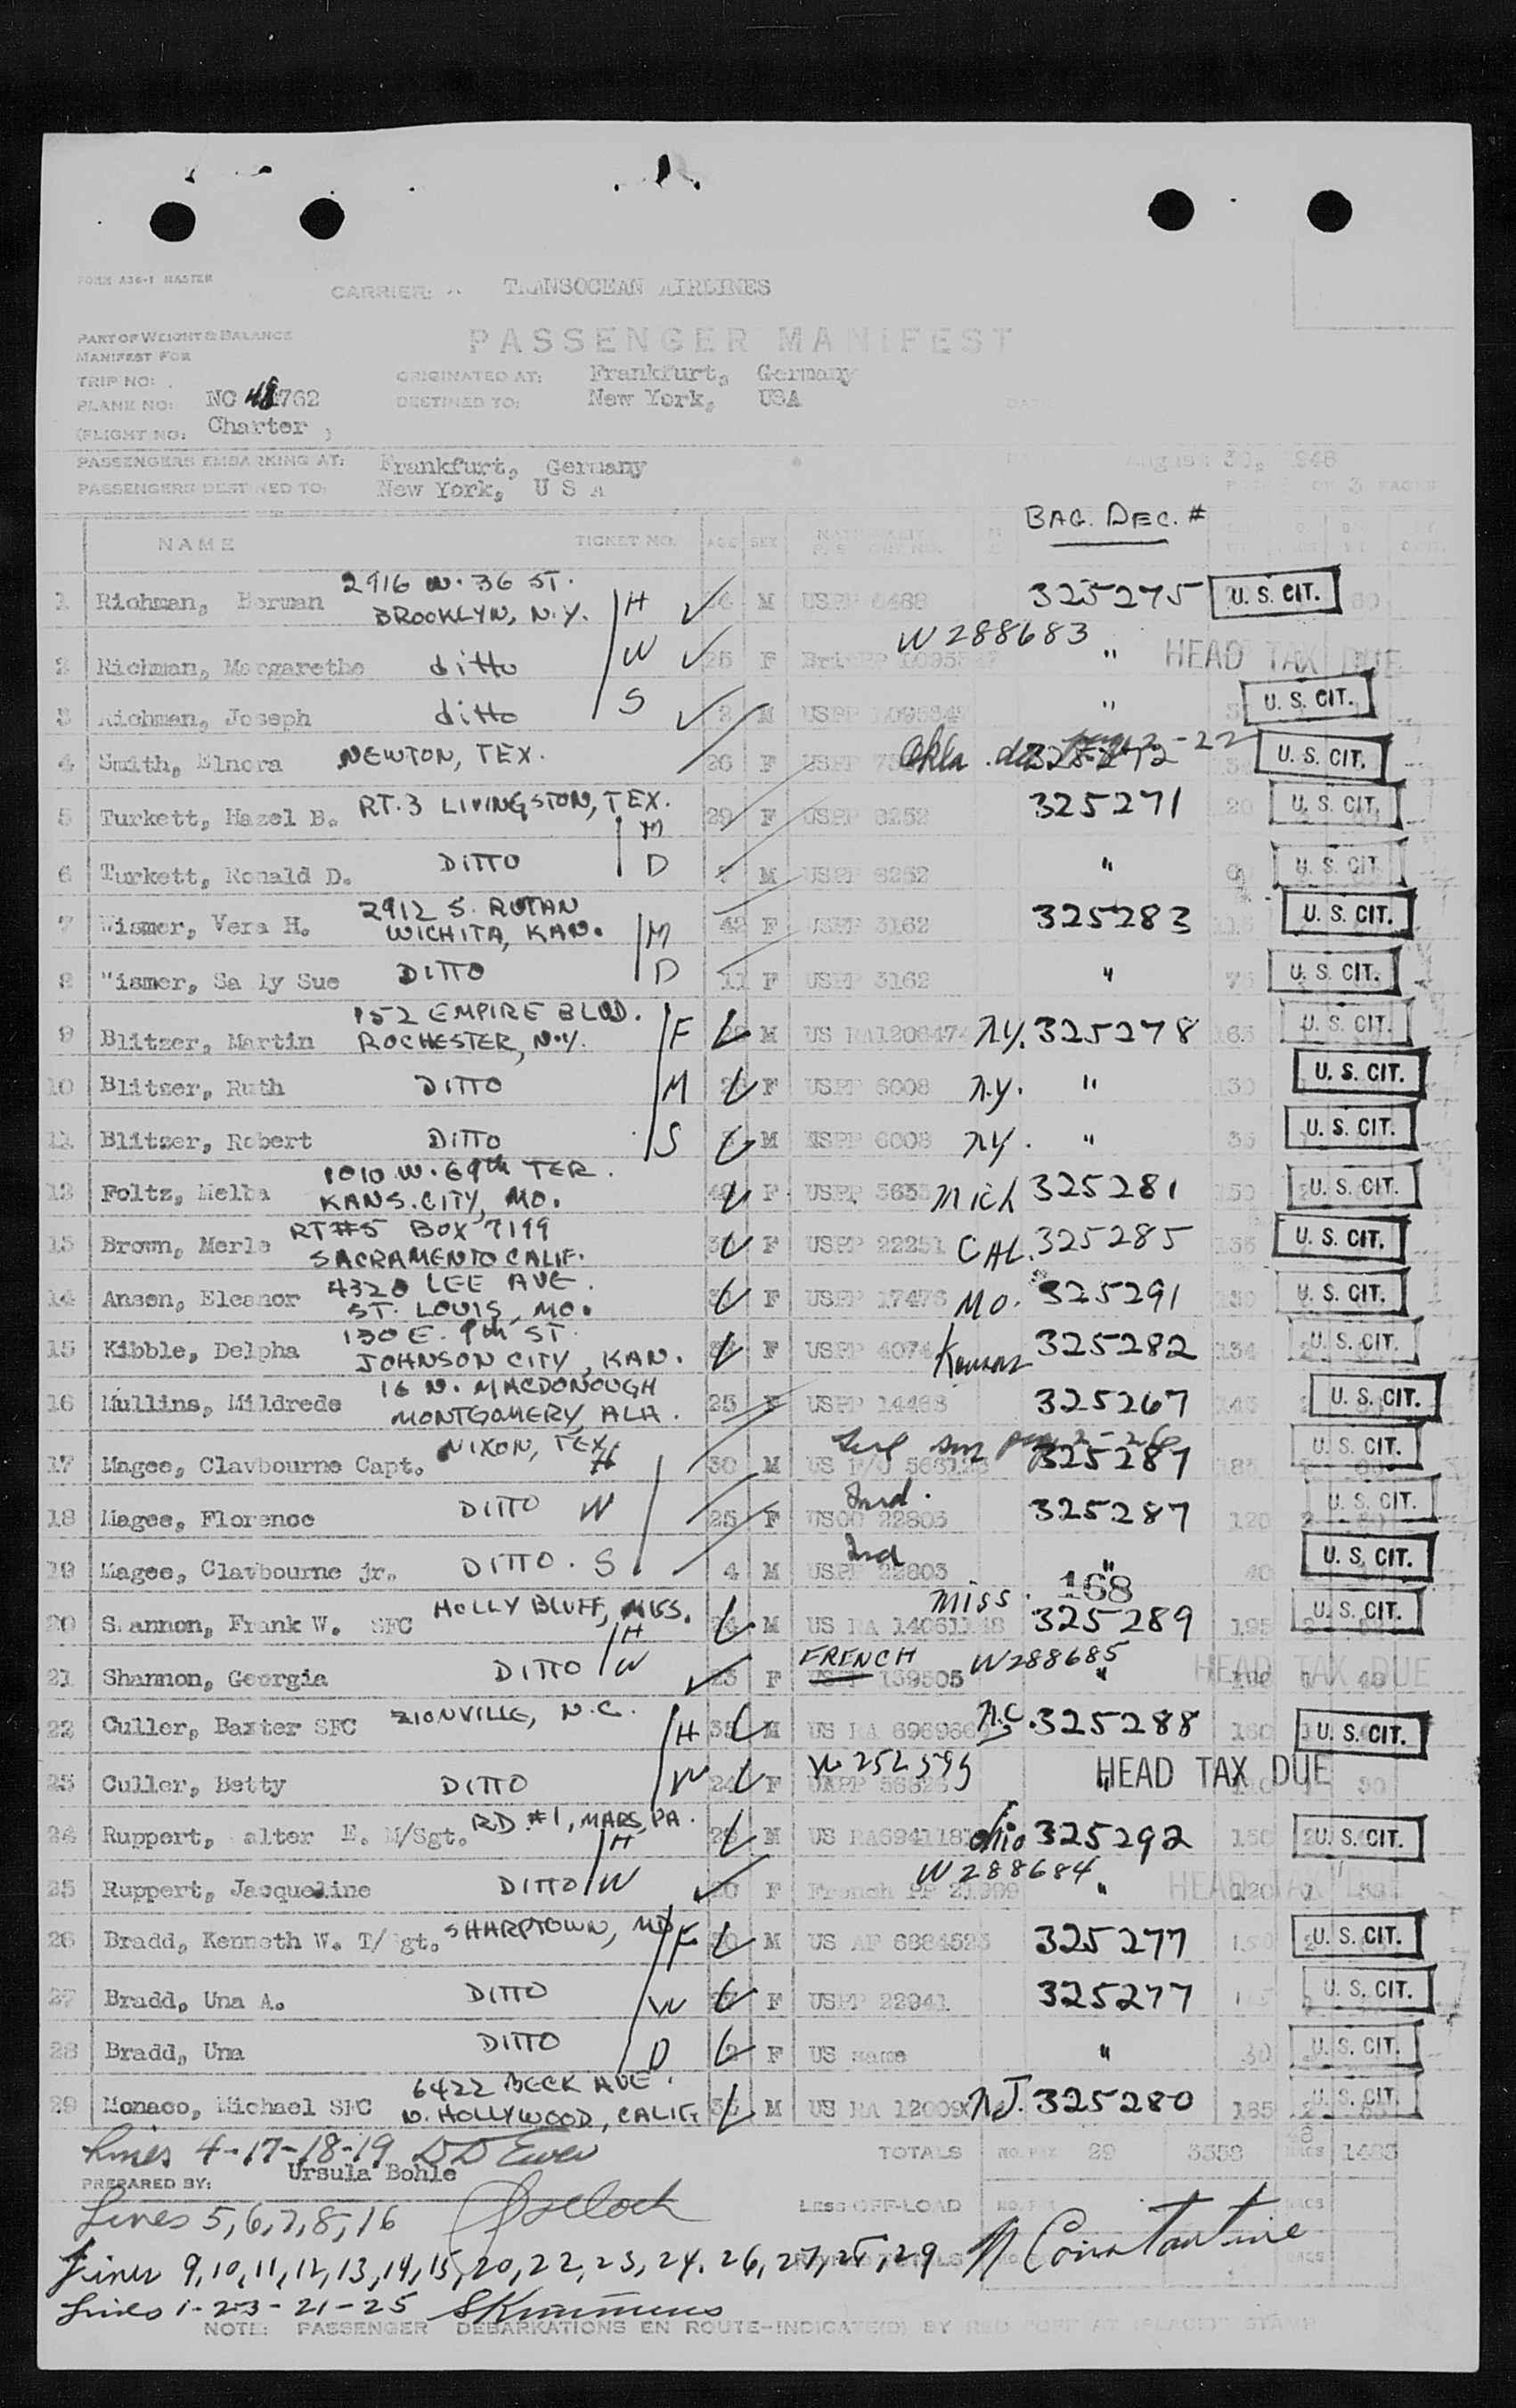 FORM A36-1 MASTER
CARRIER: TRANSOCEAN AIRLINES
PART OF WEIGHT & BALANCE
MANIFEST FOR
PASSENGER MANIFEST
TRIP NO:
ORIGINATED AT: Frankfurt, Germany
PLANE NO: NC 48762
DESTINED TO: New York, USA
(FLIGHT NO: Charter )
PASSENGERS EMBARKING AT: Frankfurt, Germany
August 30, 1948
PASSENGERS DESTINED TO: New York, U S A
OF 3 PAGES
BAG. DEC. #
NAME TICKET NO. AGE SEX
1 Richman, Herman 2916 W. 36 ST. BROOKLYN, N.Y. H M USPP 6488 325275 U. S. CIT.
2 Richman, Margarethe ditto W 25 F W288683 " HEAD TAX DUE
3 Richman, Joseph ditto S 2 M USPP " U. S. CIT.
4 Smith, Elnora NEWTON, TEX. 26 F USPP Okla. U. S. CIT.
5 Turkett, Hazel B. RT. 3 LIVINGSTON, TEX. M 29 F USPP 8252 325271 20 U. S. CIT.
6 Turkett, Ronald D. DITTO D M USPP 8252 " U. S. CIT
7 Wismer, Vera H. 2912 S. RUTAN WICHITA, KAN. M 42 F USPP 3162 325283 115 U. S. CIT.
8 "ismer, Sa ly Sue DITTO D 11 F USPP 3162 " 75 U. S. CIT.
9 Blitzer, Martin 152 EMPIRE BLVD. ROCHESTER, N.Y. F 28 M US RA1208474 N.Y. 325278 165 U. S. CIT.
10 Blitzer, Ruth DITTO M F USPP 6008 N.Y. " 130 U. S. CIT.
11 Blitzer, Robert DITTO S M USPP 6008 N.Y. " 35 U. S. CIT.
12 Foltz, Melba 1010 W. 69th TER. KANS. CITY, MO. F USPP Mich 325281 150 U. S. CIT.
13 Brown, Merle RT #5 BOX 7199 SACRAMENTO CALIF. F USPP 22251 CAL. 325285 135 U. S. CIT.
14 Anson, Eleanor 4320 LEE AVE. ST. LOUIS, MO. F USPP 17476 MO. 325291 130 U. S. CIT.
15 Kibble, Delpha 130 E. 9th ST. JOHNSON CITY, KAN. F USPP 4074 Kansas 325282 134 U. S. CIT.
16 Mullins, Mildrede 16 N. MACDONOUGH MONTGOMERY, ALA. 25 F USPP 14488 325267 145 U. S. CIT.
17 Magee, Clavbourne Capt. NIXON, TEX H 30 M US 325287 185 U. S. CIT.
18 Magee, Florence DITTO W 25 F USOO 22803 Ind. 325287 120 2 U. S. CIT.
19 Magee, Clatbourne jr. DITTO. S 4 M USPP 22803 Ind " 40 U. S. CIT.
168
20 Shannon, Frank W. SFC HOLLY BLUFF, MISS. H 24 M US RA 14061148 Miss. 325289 195 U. S. CIT.
21 Shannon, Georgia DITTO W 23 F FRENCH 139505 W288685 " HEAD TAX DUE
22 Culler, Baxter SFC ZIONVILLE, N.C. H 35 M US RA N.C. 325288 160 U. S. CIT.
23 Culler, Betty DITTO W 24 F W252595 " HEAD TAX DUE
24 Ruppert, alter E. M/Sgt. RD. #1, MARS, PA. H M US Ohio 325292 150 U. S. CIT.
25 Ruppert, Jacqueline DITTO W 20 F French PP W288684 " HEAD TAX DUE
26 Bradd, Kenneth W. T/Sgt. SHARPTOWN, MD F M US AF 325277 150 U. S. CIT.
27 Bradd, Una A. DITTO W F USPP 22941 325277 U. S. CIT.
28 Bradd, Una DITTO D 2 F US same " 30 U. S. CIT.
29 Monaco, Michael SFC 6422 BECK AVE. N. HOLLYWOOD, CALIF. M US RA N.J. 325280 185 2 U. S. CIT.
Lines 4-17-18-19
TOTALS NO. PAX 29 3558 48 BAGS 1483
PREPARED BY: Ursula Bohle
Lines 5, 6, 7, 8, 16
LESS OFF-LOAD
Lines 9, 10, 11, 12, 13, 14, 15, 20, 22, 23, 24. 26, 27, 28, 29 N Constantine
Lines 1-2-3-21-25
NOTE: PASSENGER DEBARKATIONS EN ROUTE-INDICATE(D) BY